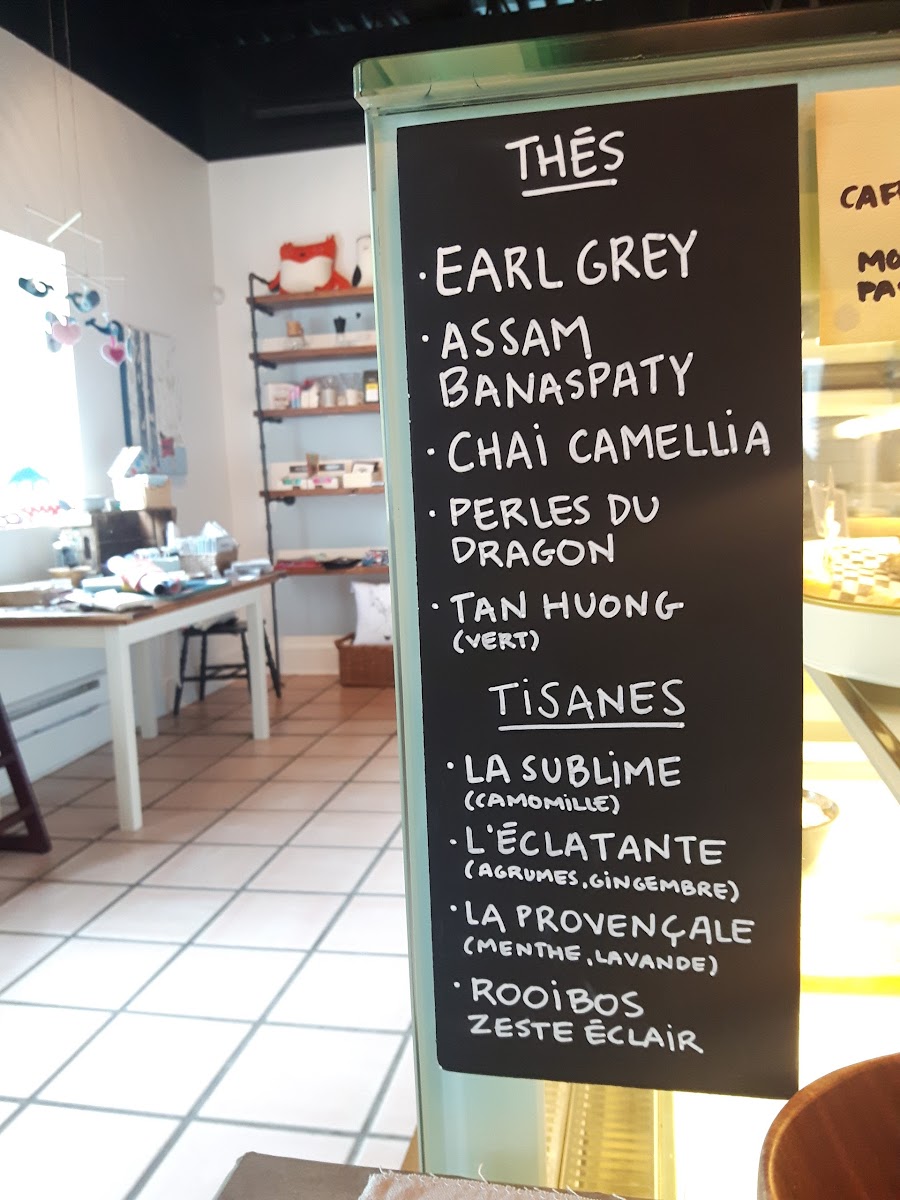 THÉS
· EARL GREY
· ASSAM
BANASPATY
· CHAI CAMELLIA
· PERLES DU
DRAGON
· TAN HUONG
(VERT)
TISANES
· LA SUBLIME
(CAMOMILLE)
· L'ÉCLATANTE
(AGRUMES, GINGEMBRE)
· LA PROVENÇALE
(MENTHE, LAVANDE)
· ROOIBOS
ZESTE ÉCLAIR